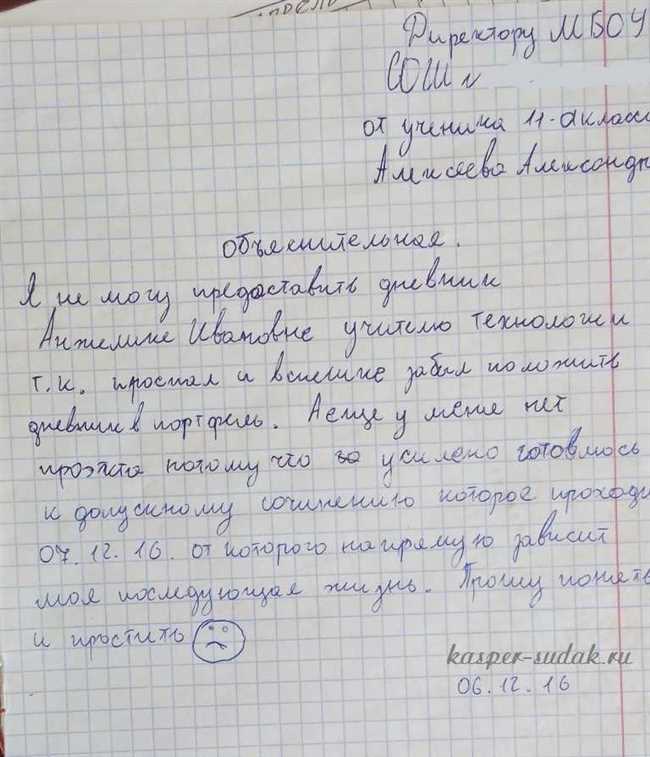 Директору МБОУ
СОШ №
от ученика 11-а класс
Алексеева Александр
Объяснительная.
Я не могу предоставить дневник
Анжелике Ивановне учителю технологии
т.к. проспал и в спешке забыл положить
дневник в портфель. А еще у меня нет
проэкта потому что усилено готовлюсь
к допускному сочинению которое проходи
07.12.16. от которого напрямую зависит
моя последующая жизнь. Прошу понять
и простить
kasper-sudak.ru
06.12.16